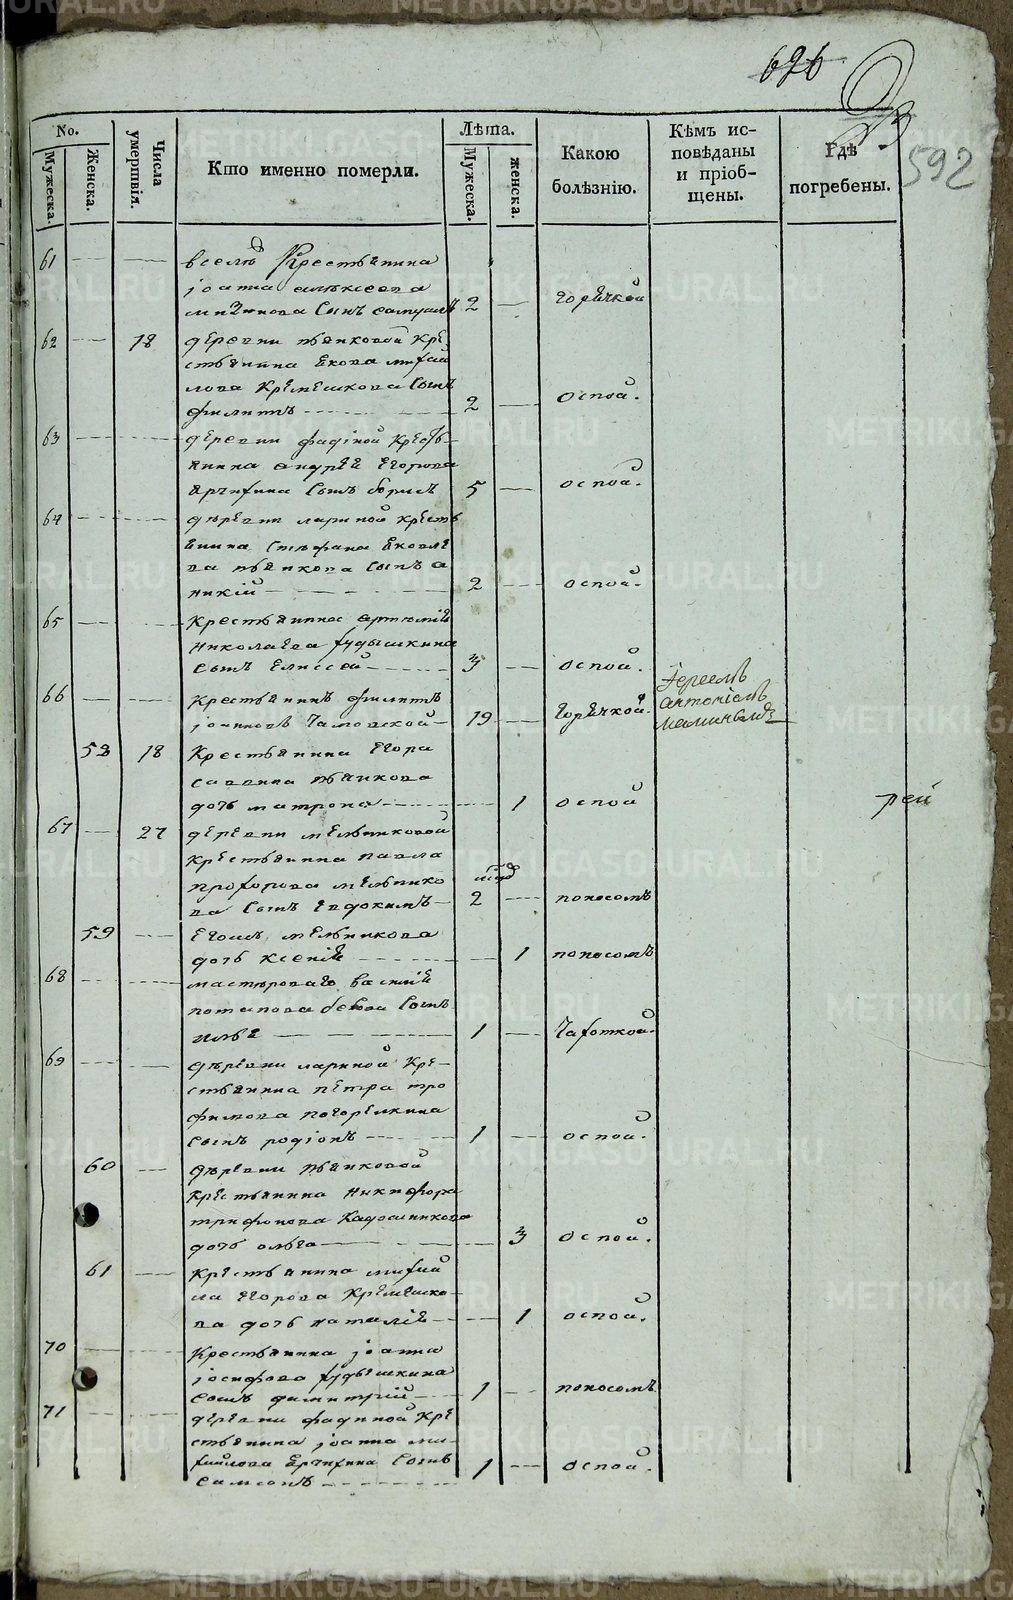 626
23
592
No.
Мужеска.
Женска.
Числа умертвія.
Кто именно померли.
Лѣта.
Мужеска.
женска.
Какою болѣзнію.
Кѣмъ исповѣданы и пріобщены.
Гдѣ погребены.
61 вселѣ Крестьянина
іоанна алексеева
сынъ самуилъ 2 горячкой
62 18 деревни пьянковой кре
стьянина якова михай
лова Кремешкова сынъ
филипъ 2 оспой.
63 деревни фадіной крест
янина андрея егорова
сынъ борисъ 5 оспой.
64 деревни лариной крест
янина стефана яковле
ва пьянкова сынъ а
никій 2 оспой.
65 крестьянина артемія
николаева худышкина
сынъ елиссей 3 оспой.
66 крестьянинъ филипъ
іоанновъ 19 горячкой.
іереемъ
антоніемъ
маминымъ
58 18 Крестьянина Егора
саввина пьянкова
дочь матрона 1 оспой
67 27 деревни мельниковой
крестьянина павла
прохорова мельнико
ва сынъ Евдокимъ 2 поносомъ
59 Егожъ мельникова
дочь ксенія 1 поносомъ
68 мастероваго василія
потапова сынъ
илья 1 чахоткой.
69 деревни лариной кре
стьянина петра тро
фимова погорелкина
сынъ родіонъ 1 оспой.
60 деревни пьянковой
крестьянина никифора
трифонова Кадошникова
дочь ольга 3 оспой.
61 крестьянина михай
ла егорова Кремешко
ва дочь наталія 1 оспой.
70 Крестьянина іоанна
іосифова худышкина
сынъ димитрій 1 поносомъ
71 деревни фадиной кре
стьянина іоанна ми
хайлова сынъ
самсонъ 1 оспой.
рей
METRIKI.GASO-URAL.RU